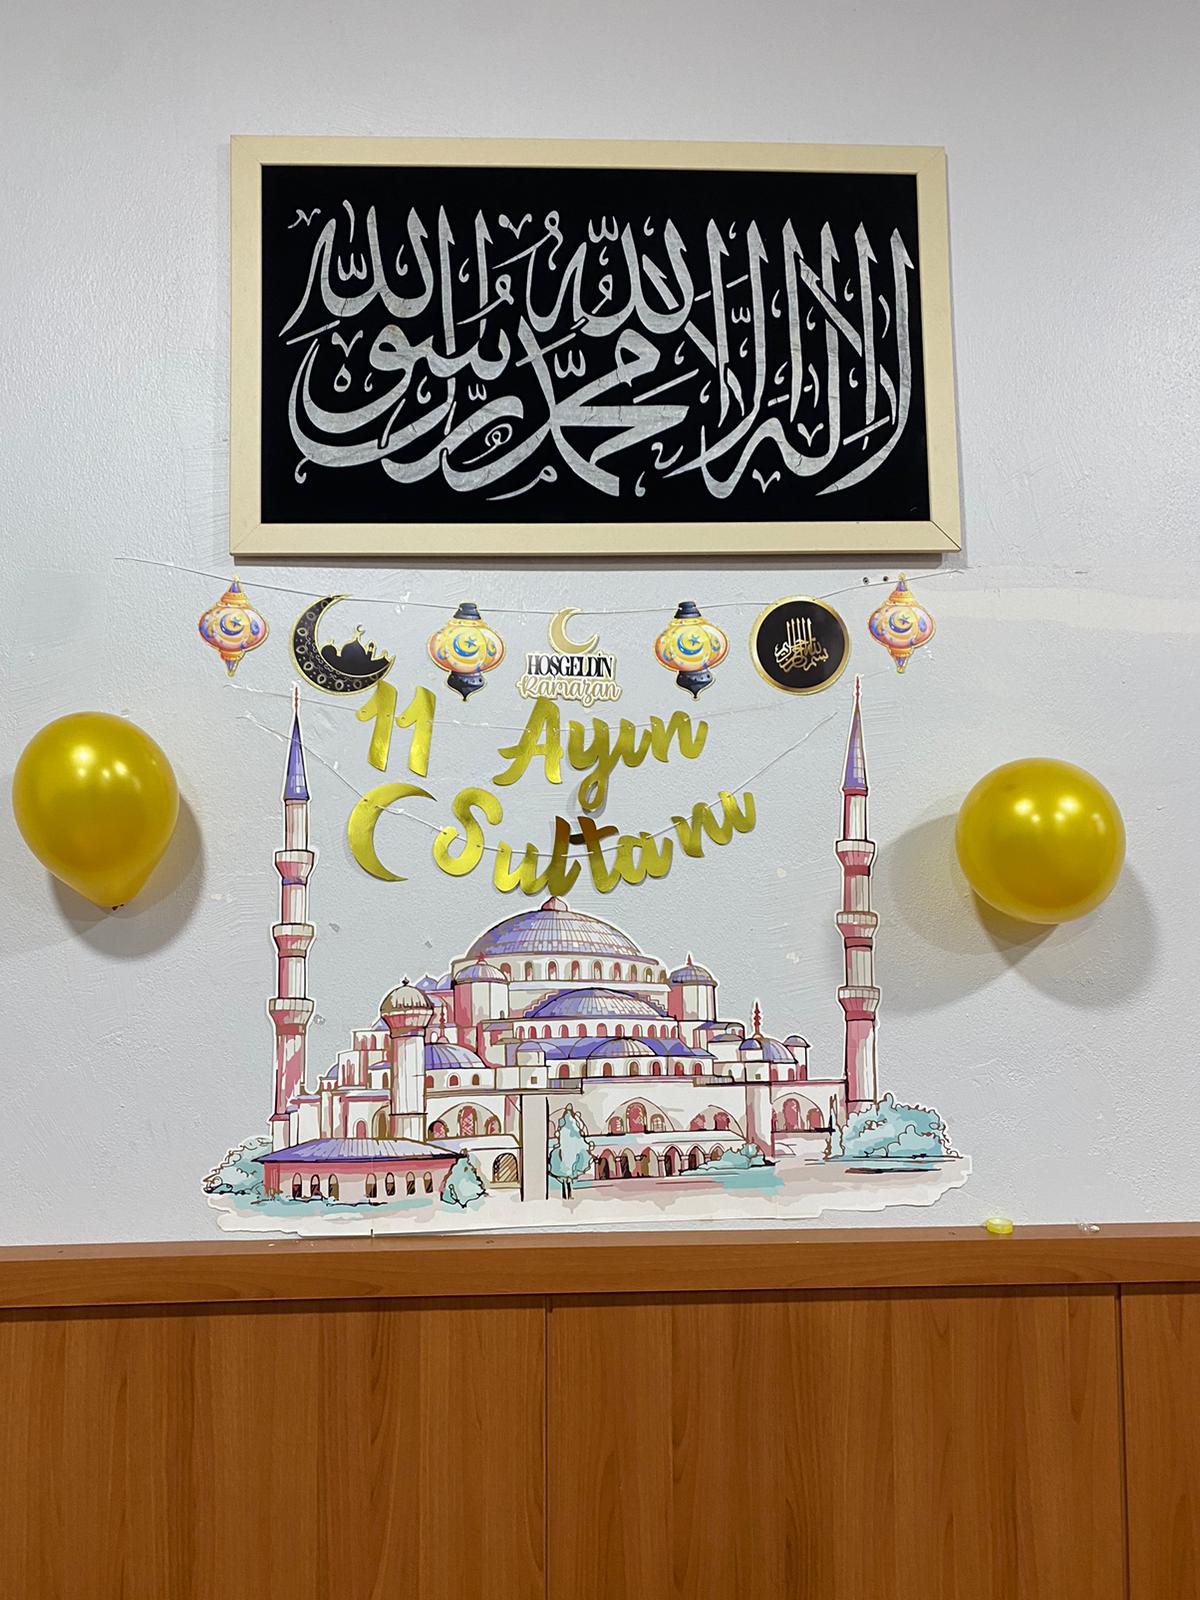 لا إله إلا الله محمد رسول الله
HOŞGELDİN
Ramazan
بسم الله الرحمن الرحيم
11 Ayın
Sultanı